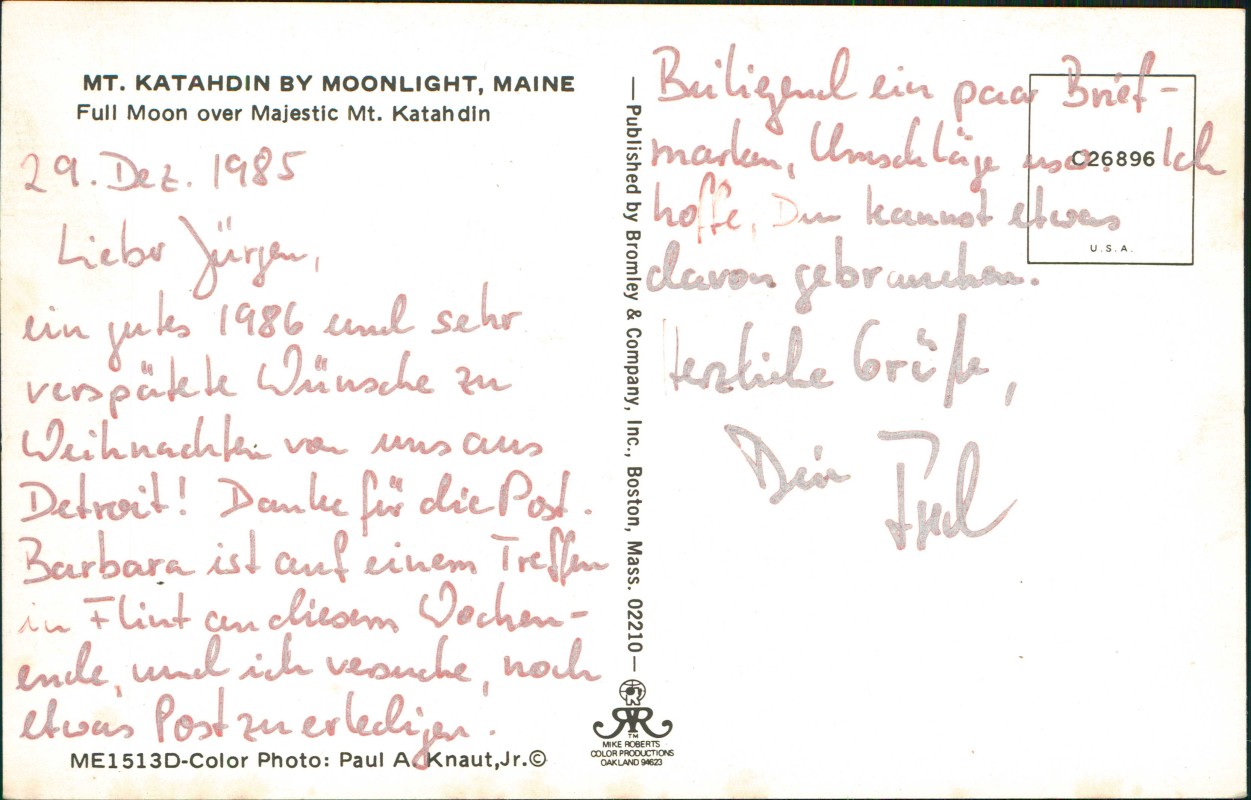 MT. KATAHDIN BY MOONLIGHT, MAINE
Full Moon over Majestic Mt. Katahdin
29. Dez. 1985
Lieber Jürgen,
ein gutes 1986 und sehr
verspätete Wünsche zu
Weihnachten von uns aus
Detroit! Danke für die Post.
Barbara ist auf einem Treffen
in Flint an diesem Wochen-
ende, und ich versuche, noch
etwas Post zu erledigen.
ME1513D-Color Photo: Paul A. Knaut,Jr.©
—Published by Bromley & Company, Inc., Boston, Mass. 02210—
TM
MIKE ROBERTS
COLOR PRODUCTIONS
OAKLAND 94623
Beiliegend ein paar Brief-
marken, Umschläge usw. Ich
hoffe, Du kannst etwas
davon gebrauchen.
Herzliche Grüße,
Dein Fred
C26896
U.S.A.